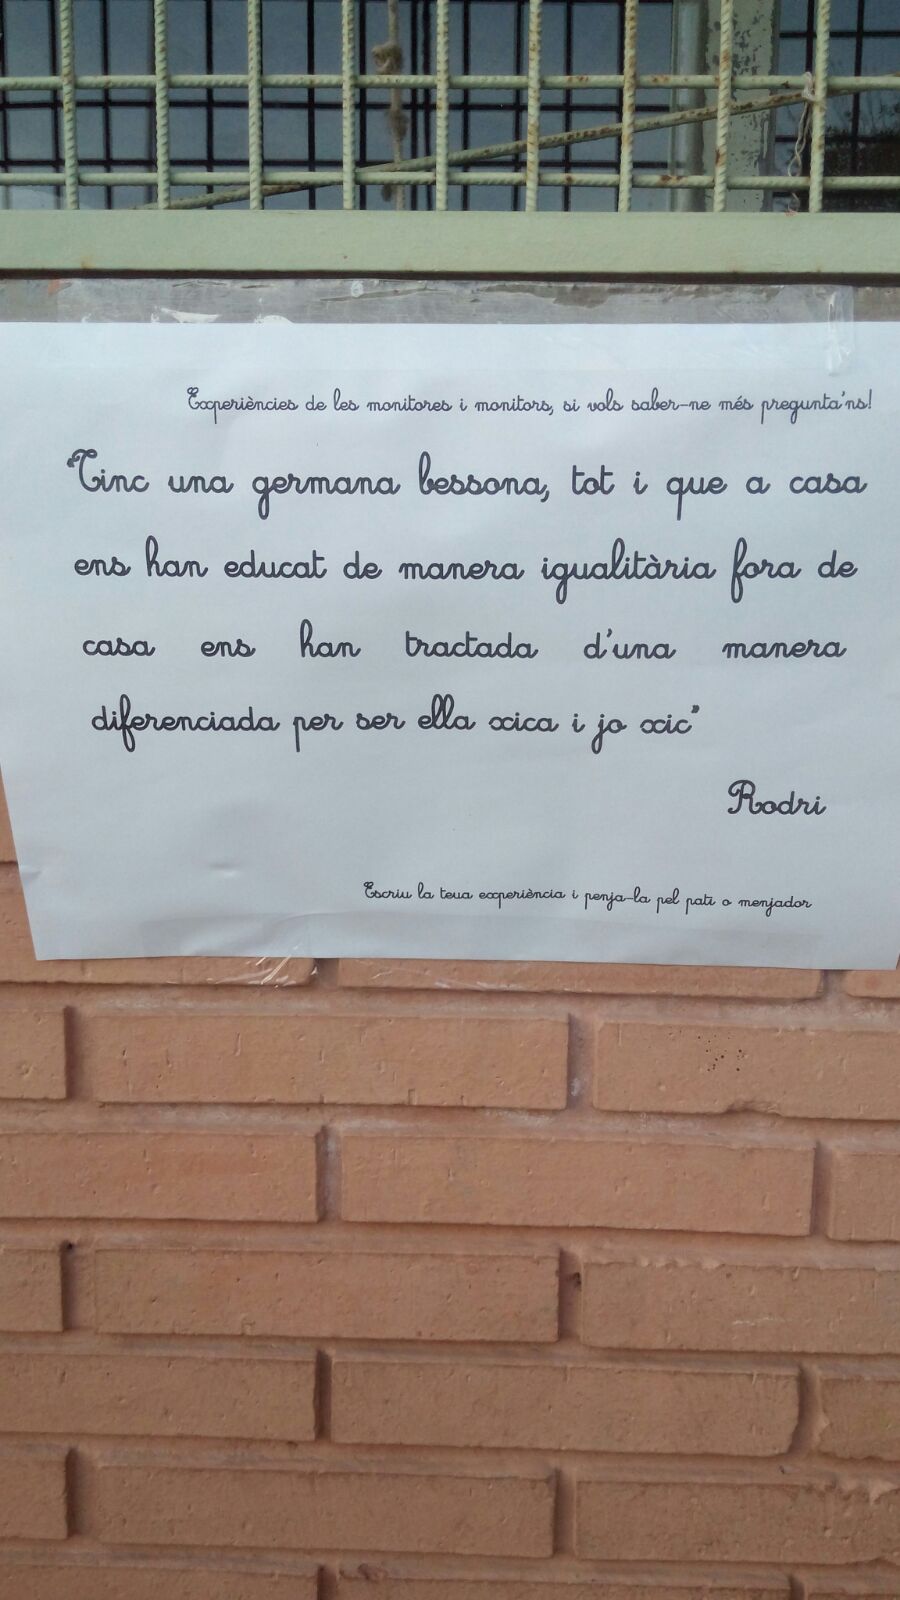 Experiències de les monitores i monitors, si vols saber-ne més pregunta'ns!
"Tinc una germana bessona, tot i que a casa
ens han educat de manera igualitària fora de
casa ens han tractada d'una manera
diferenciada per ser ella xica i jo xic"
Rodri
Escriu la teua experiència i penja-la pel pati o menjador